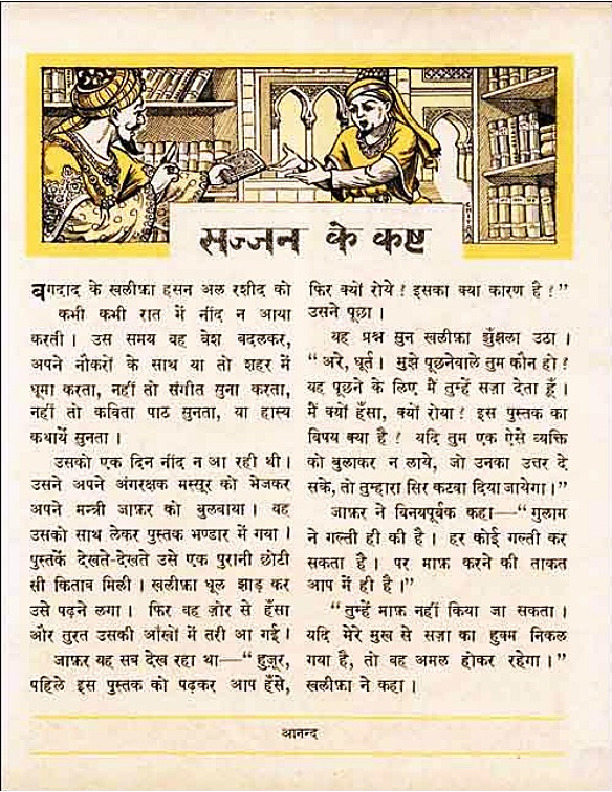 सज्जन के कष्ट
बगदाद के खलीफ़ा हसन अल रशीद को
कभी कभी रात में नींद न आया
करती । उस समय वह वेश बदलकर,
अपने नौकरों के साथ या तो शहर में
घूमा करता, नहीं तो संगीत सुना करता,
नहीं तो कविता पाठ सुनता, या हास्य
कथायें सुनता ।
उसको एक दिन नींद न आ रही थी ।
उसने अपने अंगरक्षक मस्सूर को भेजकर
अपने मन्त्री जाफ़र को बुलवाया । वह
उसको साथ लेकर पुस्तक भण्डार में गया ।
पुस्तकें देखते-देखते उसे एक पुरानी छोटी
सी किताब मिली । खलीफ़ा धूल झाड़ कर
उसे पढ़ने लगा । फिर वह ज़ोर से हँसा
और तुरत उसकी आँखों में तरी आ गई ।
जाफ़र यह सब देख रहा था—“ हुज़ूर,
पहिले इस पुस्तक को पढ़कर आप हँसे,
फिर क्यों रोये ? इसका क्या कारण है ? ”
उसने पूछा ।
यह प्रश्न सुन खलीफ़ा झुँझला उठा ।
“ अरे, धूर्त । मुझे पूछनेवाले तुम कौन हो ?
यह पूछने के लिए मैं तुम्हें सज़ा देता हूँ ।
मैं क्यों हँसा, क्यों रोया ? इस पुस्तक का
विषय क्या है ? यदि तुम एक ऐसे व्यक्ति
को बुलाकर न लाये, जो उनका उत्तर दे
सके, तो तुम्हारा सिर कटवा दिया जायेगा । ”
जाफ़र ने विनयपूर्वक कहा—“ गुलाम
ने गल्ती ही की है । हर कोई गल्ती कर
सकता है । पर माफ़ करने की ताकत
आप में ही है । ”
“ तुम्हें माफ़ नहीं किया जा सकता ।
यदि मेरे मुख से सज़ा का हुक्म निकल
गया है, तो वह अमल होकर रहेगा । ”
खलीफ़ा ने कहा ।
आनन्द